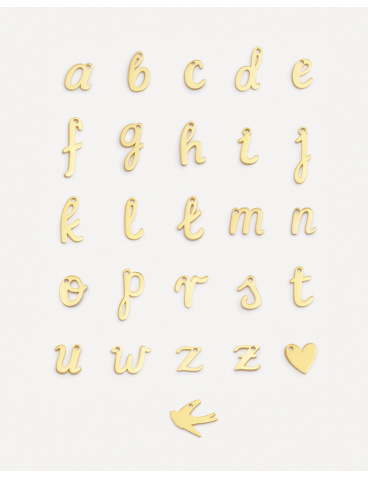 a b c d e
f g h i j
k l ł m n
o p r s t
u w z z